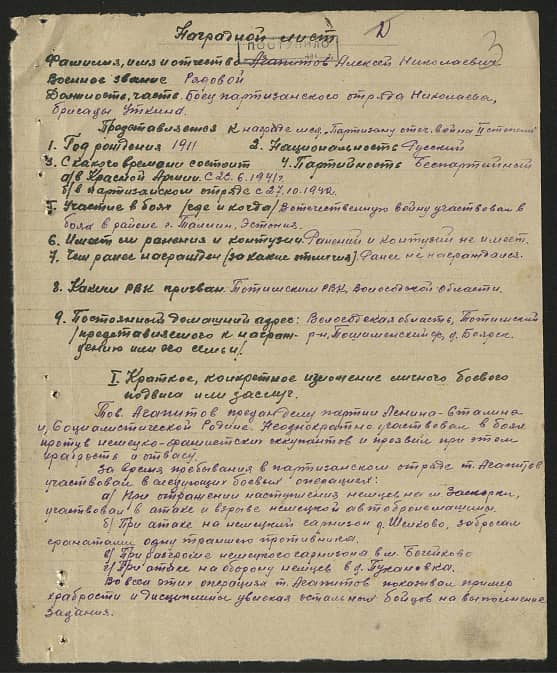 Наградной лист
ПОСТУПИЛО
3
Фамилия, имя и отчество Агапитов Алексей Николаевич
Военное звание Рядовой
Должность, часть Боец партизанского отряда Николаева,
бригады Уткина.
Представляется к награде мед. Партизану отеч. война II степени
1. Год рождения 1911 2. Национальность Русский
3. С какого времени состоит 4. Партийность Беспартийный
а/ в Красной Армии С 22.6.1941г.
б/ в партизанском отряде с 27.10.1942г.
5. Участие в боях (где и когда) В отечественную войну участвовал в
боях в районе г. Таллин, Эстония.
6. Имеет ли ранения и контузии Ранений и контузий не имеет.
7. Чем ранее награжден (за какие отличия) Ранее не награждался.
8. Каким РВК призван Тотемским РВК, Вологодской области.
9. Постоянный домашний адрес: Вологодская область, Тотемский
/представляемого к награж- р-н,
дению или его семьи/
I. Краткое, конкретное изложение личного боевого
подвига или заслуг.
Тов. Агапитов предан делу партии Ленина-Сталина
и Социалистической Родине. Неоднократно участвовал в боях
против немецко-фашистских оккупантов и проявил при этом
храбрость и отвагу.
За время пребывания в партизанском отряде т. Агапитов
участвовал в следующих боевых операциях:
а) При отражении наступления немцев на м. Заскорки,
участвовал в атаке и взрыве немецкой автобронемашины.
б) При атаке на немецкий гарнизон д. забросал
гранатами одну траншею противника.
в) При разгроме немецкого гарнизона в м.
г) При атаке на оборону немцев в д. Пукановка.
Во всех этих операциях т. Агапитов показывал пример
храбрости и дисциплины увлекая остальных бойцов на выполнение
задания.